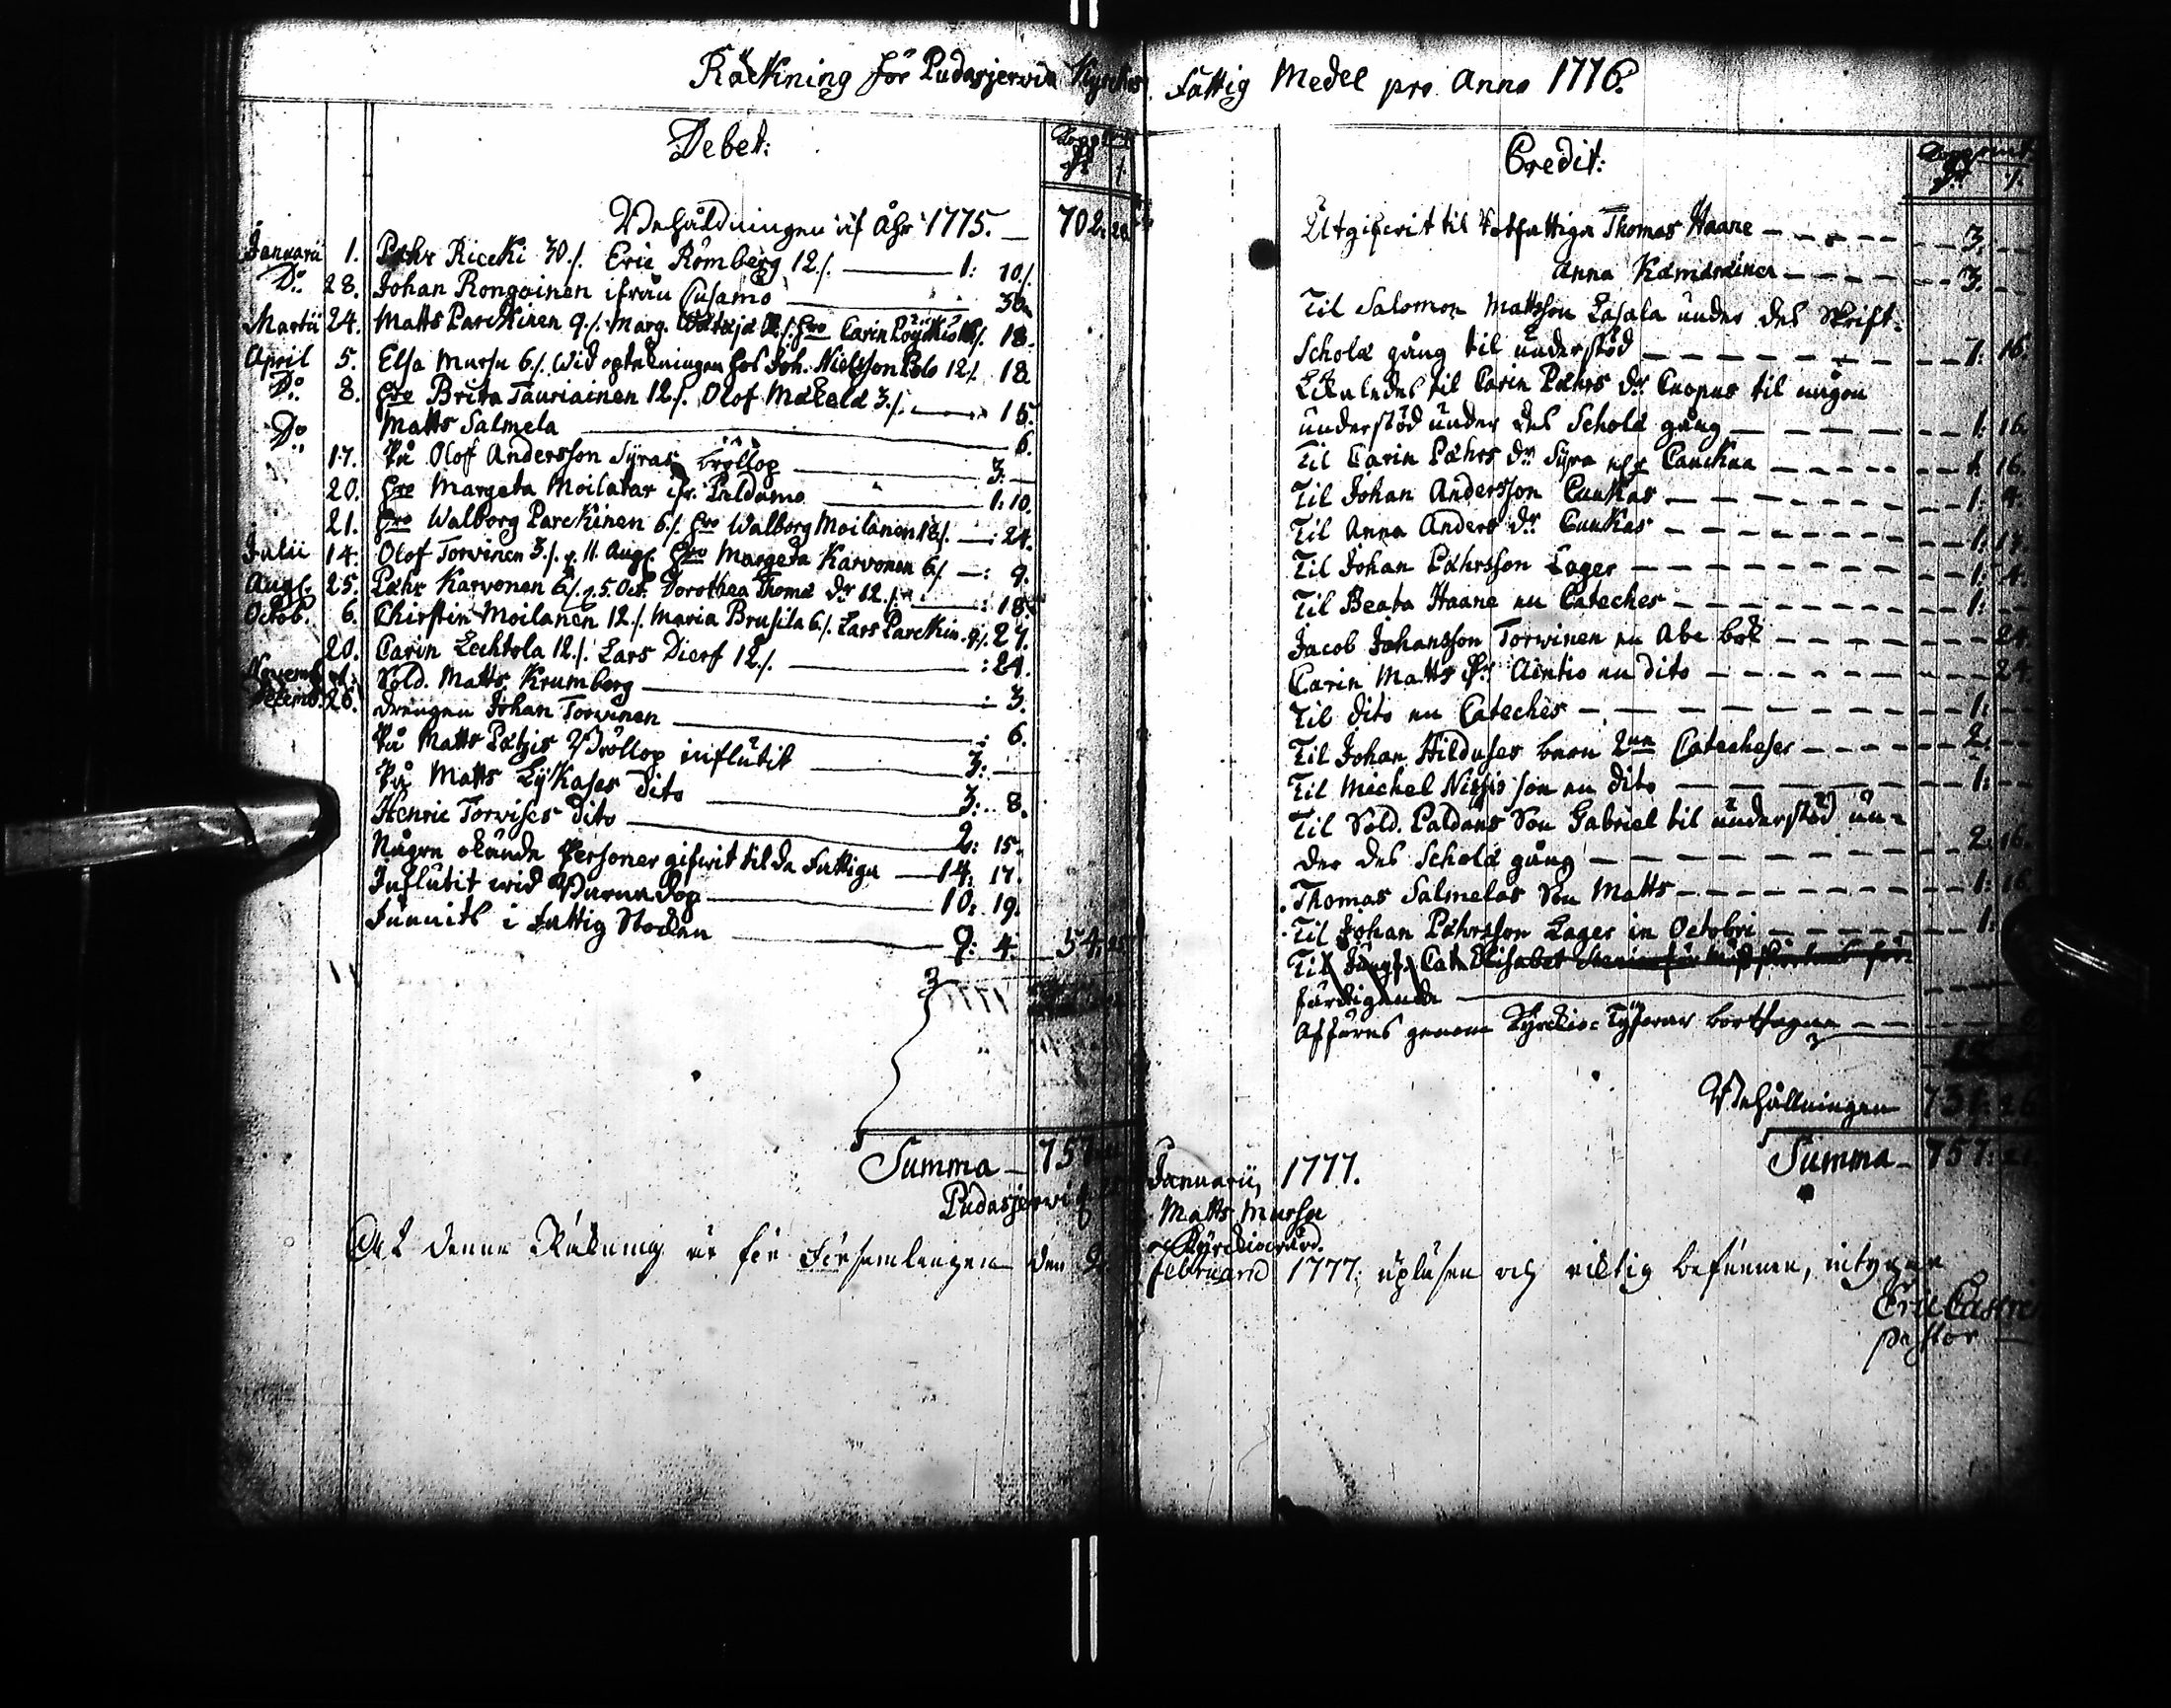 Räckning för Pudasjervi Kyrckios Fattig Medel pro Anno 1776.
Debet:
Behåldningen af åhr 1775. — 702:
Januarii 1. Pähr Riecki 30./. Eric Römberg 12./. — 1: 10./.
Do: 28. Johan Rongainen ifrån Cusamo — 30.
Martii 24. Matts Parckinen 9./. Marg. Carin 18.
April 5. Elsa Mursu 6./. Wid optekningen hos Joh. Nielsson Polo 12./. 18.
Do: 8. hre Brita Tauriainen 12./. Olof Mäkelä 3./. — 15.
Do: Matts Salmela — 6.
17. På Olof Andersson Syras bröllop — 3: —
20. hre Margeta Moilatar ifr. Paldamo — 1: 10.
21. hro Walborg Parckinen 6./. hro Walborg Moilanen 18./. —: 24.
Julii 14. Olof Torvinen 3./. d. 11 Aug. hro Margeta Karvonen 6./. —: 9.
Aug. 25. Pähr Karvonen 6./. d. 5. Oct. Dorothea Thoms dr 12./. —: 18.
Octob. 6. Chirstin Moilanen 12./. Maria Brusila 6./. Lars Parckin. 9/. 27.
20. Carin Lechtola 12./. Lars Dierf 12./. — : 24.
Novemb. Sold. Matts Krumberg — : 3.
Decemb. 26. Drengen Johan Torvinen — : 6.
På Matts Pätzis Bröllop influtit — 3: —
På Matts Lykases dito — 3: 8.
Henric Torvises dito — 2: 15.
Någre okände Personer gifwit til da Fattiga — 14: 17.
Influtit wid Barna Dop — 10: 19.
Funnits i Fattig Stocken — 9: 4. 54:
Summa — 757:
Pudasjervi
Credit:
Utgifwit til Utfattiga Thomas Haane — 3. —
Anna Kämäräinen — 3. —
Til Salomon Mattsson Lasala under des Skrift-
Schola gång til understöd — 1: 16.
Likaledes til Carin Pährs dr Cuopus til någon
understöd under des Schola gång — 1: 16.
Til Carin Pährs dr Syra Cauckaa — 1: 16.
Til Johan Andersson Cuukas — 1: 4.
Til Anna Anders dr Cuukas — 1:
Til Johan Pährsson Lager — 1: 4.
Til Beata Haane en Cateches — 1: —
Jacob Johansson Torwinen en Abc bok — 24.
Carin Matts dr Aintio en dito — 24.
Til dito en Cateches — 1: —
Til Johan Hilduses barn 2ne Catecheser — 2. —
Til Michel Nissis son en dito — 1: —
Til Sold. Paldans Son Gabriel til understöd un-
der des Schola gång — 2. 16.
Thomas Salmelas Son Matts — 1: 16.
Til Johan Pährsson Lager in Octobri — 1:
Til Jungf. Cat. Elisabet
färdigande —
Afföres genom Kyrckio-Tjufwar borttagne —
Behållningen 731: 26
Summa — 757: 21.
Januarii, 1777.
Matts Mursu
Kyrckiovärd.
At denna Räkning är för Församlingen den 9. Februarii 1777. upläsen och richtig befunnen, intygar
Eric Castren
pastor